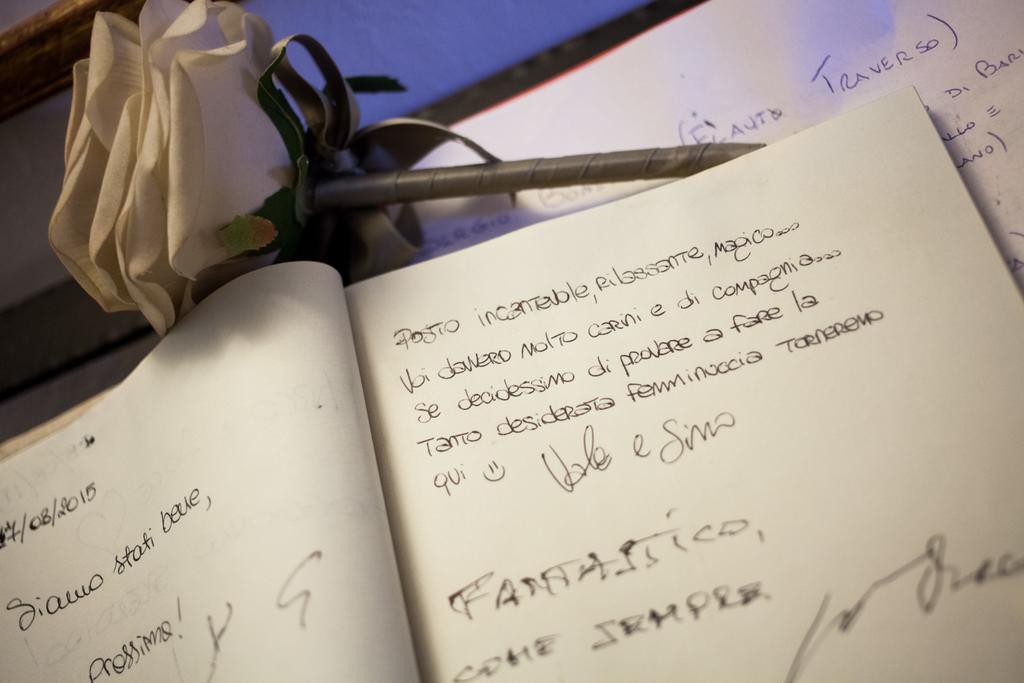 17/08/2015
Siamo stati bene,
prossima!
Posto incantevole, rilassante, magico...
Voi davvero molto carini e di compagnia...
Se decidessimo di provare a fare la
tanto desiderata femminuccia torneremo
qui :) Vale e Simo
FANTASTICO,
COME SEMPRE
(FLAUTO TRAVERSO)
SERGIO
DI BARI